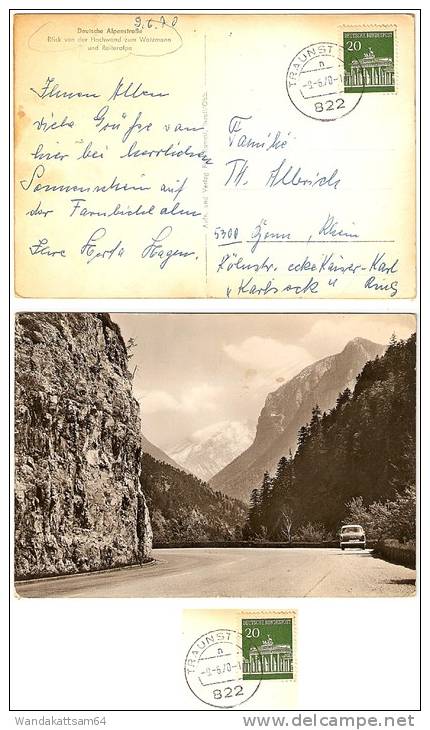 9.6.70
Deutsche Alpenstraße
Blick von der Hochwand zum Watzmann
und Reiteralpe
TRAUNST
n
-9.-6.70-1
822
20
DEUTSCHE BUNDESPOST
Ihnen Allen
viele Grüße von
hier bei herrlichen
Sonnenschein auf
der
Ihre Herta Hagen.
Aufn. und Verlag
Familie
Th. Albrich
5300 Bonn, Rhein
Kölnstr. ecke Kaiser-Karl
"Karlseck" Ring
TRAUNST
n
-9.-6.70-1
822
20
DEUTSCHE BUNDESPOST
Wandakattsam64
www.delcampe.net